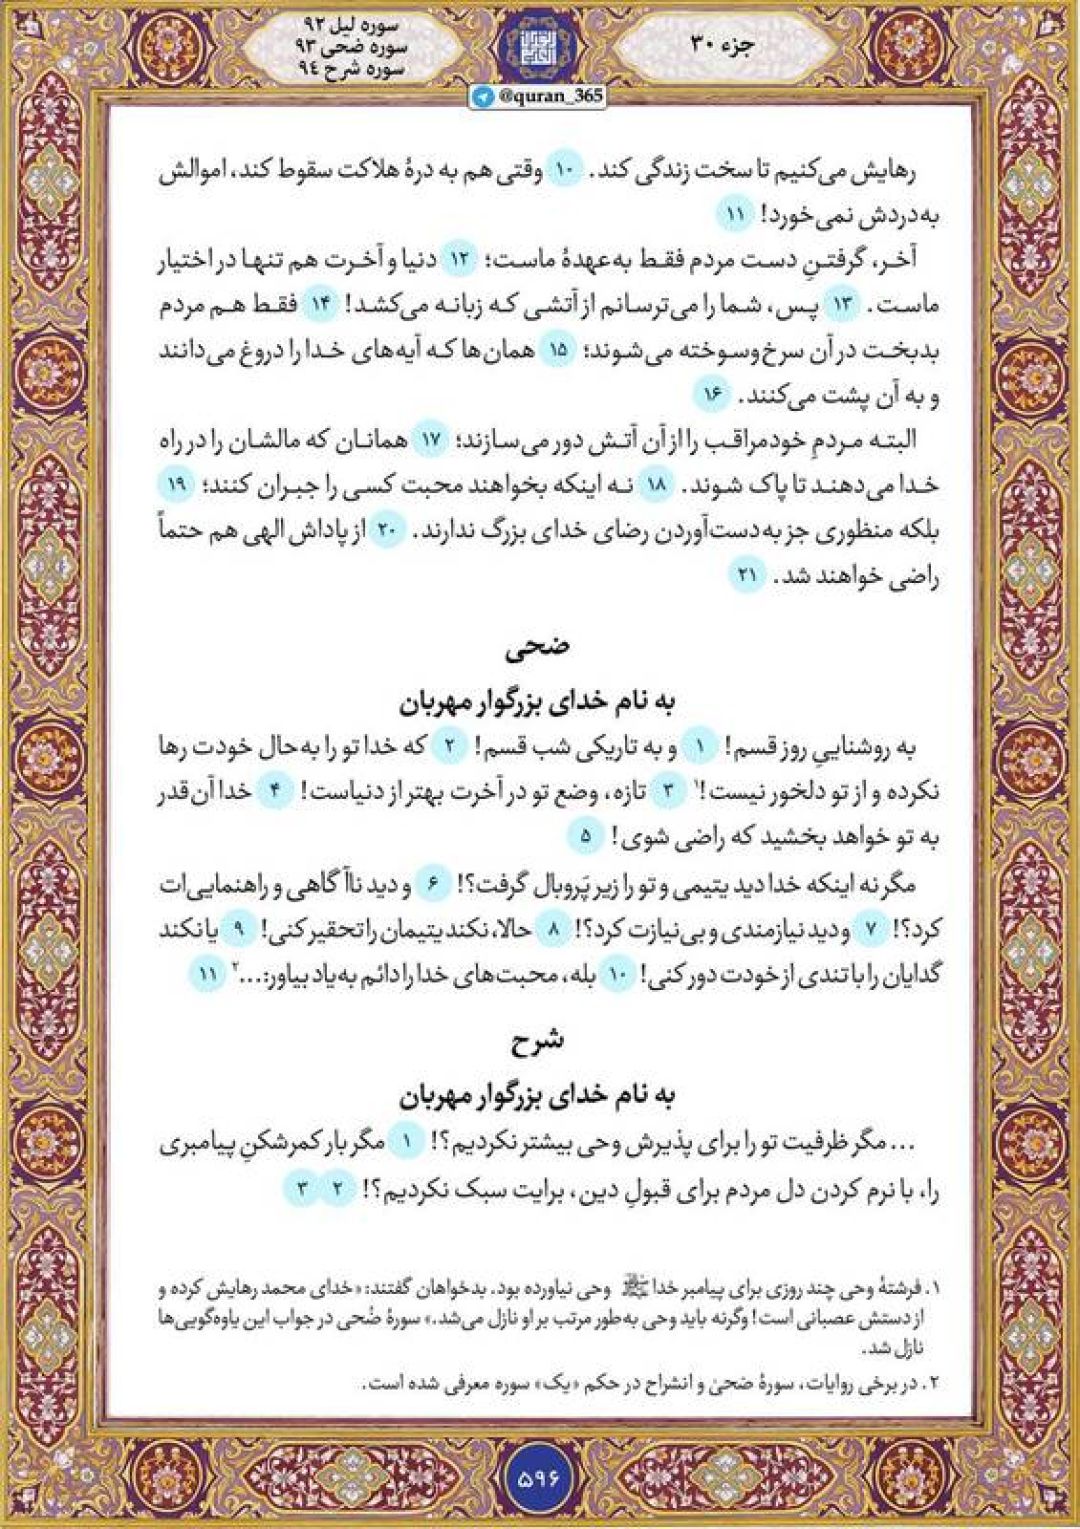 جزء ۳۰
سوره لیل ۹۲
سوره ضحی ۹۳
سوره شرح ۹٤
@quran_365
رهایش می‌کنیم تا سخت زندگی کند. ۱۰ وقتی هم به درهٔ هلاکت سقوط کند، اموالش
به‌دردش نمی‌خورد! ۱۱
آخر، گرفتنِ دست مردم فقط به‌عهدهٔ ماست؛ ۱۲ دنیا و آخرت هم تنها در اختیار
ماست. ۱۳ پس، شما را می‌ترسانم از آتشی که زبانه می‌کشد! ۱۴ فقط هم مردم
بدبخت در آن سرخ‌وسوخته می‌شوند؛ ۱۵ همان‌ها که آیه‌های خدا را دروغ می‌دانند
و به آن پشت می‌کنند. ۱۶
البته مردمِ خودمراقب را از آن آتش دور می‌سازند؛ ۱۷ همانان که مالشان را در راه
خدا می‌دهند تا پاک شوند. ۱۸ نه اینکه بخواهند محبت کسی را جبران کنند؛ ۱۹
بلکه منظوری جز به‌دست‌آوردن رضای خدای بزرگ ندارند. ۲۰ از پاداش الهی هم حتماً
راضی خواهند شد. ۲۱
ضحی
به نام خدای بزرگوار مهربان
به روشناییِ روز قسم! ۱ و به تاریکی شب قسم! ۲ که خدا تو را به‌حال خودت رها
نکرده و از تو دلخور نیست!۱ ۳ تازه، وضع تو در آخرت بهتر از دنیاست! ۴ خدا آن‌قدر
به تو خواهد بخشید که راضی شوی! ۵
مگر نه اینکه خدا دید یتیمی و تو را زیر پَر‌وبال گرفت؟! ۶ و دید ناآگاهی و راهنمایی‌ات
کرد؟! ۷ و دید نیازمندی و بی‌نیازت کرد؟! ۸ حالا، نکند یتیمان را تحقیر کنی! ۹ یا نکند
گدایان را با تندی از خودت دور کنی! ۱۰ بله، محبت‌های خدا را دائم به‌یاد بیاور:...۲ ۱۱
شرح
به نام خدای بزرگوار مهربان
... مگر ظرفیت تو را برای پذیرش وحی بیشتر نکردیم؟! ۱ مگر بار کمرشکنِ پیامبری
را، با نرم کردن دل مردم برای قبولِ دین، برایت سبک نکردیم؟! ۲ ۳
۱. فرشتهٔ وحی چند روزی برای پیامبر خدا ﷺ وحی نیاورده بود. بدخواهان گفتند: «خدای محمد رهایش کرده و
از دستش عصبانی است! وگرنه باید وحی به‌طور مرتب بر او نازل می‌شد.» سورهٔ ضُحی در جواب این یاوه‌گویی‌ها
نازل شد.
۲. در برخی روایات، سورهٔ ضحیٰ و انشراح در حکم «یک» سوره معرفی شده است.
۵۹۶